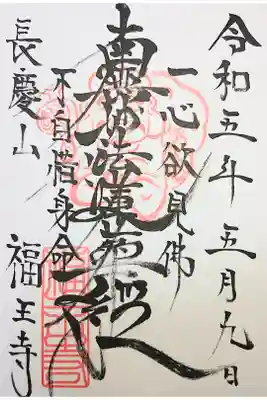 令和五年 五月九日
一心欲見佛
南無妙法蓮華経
不自惜身命
長慶山 福王寺
福王寺